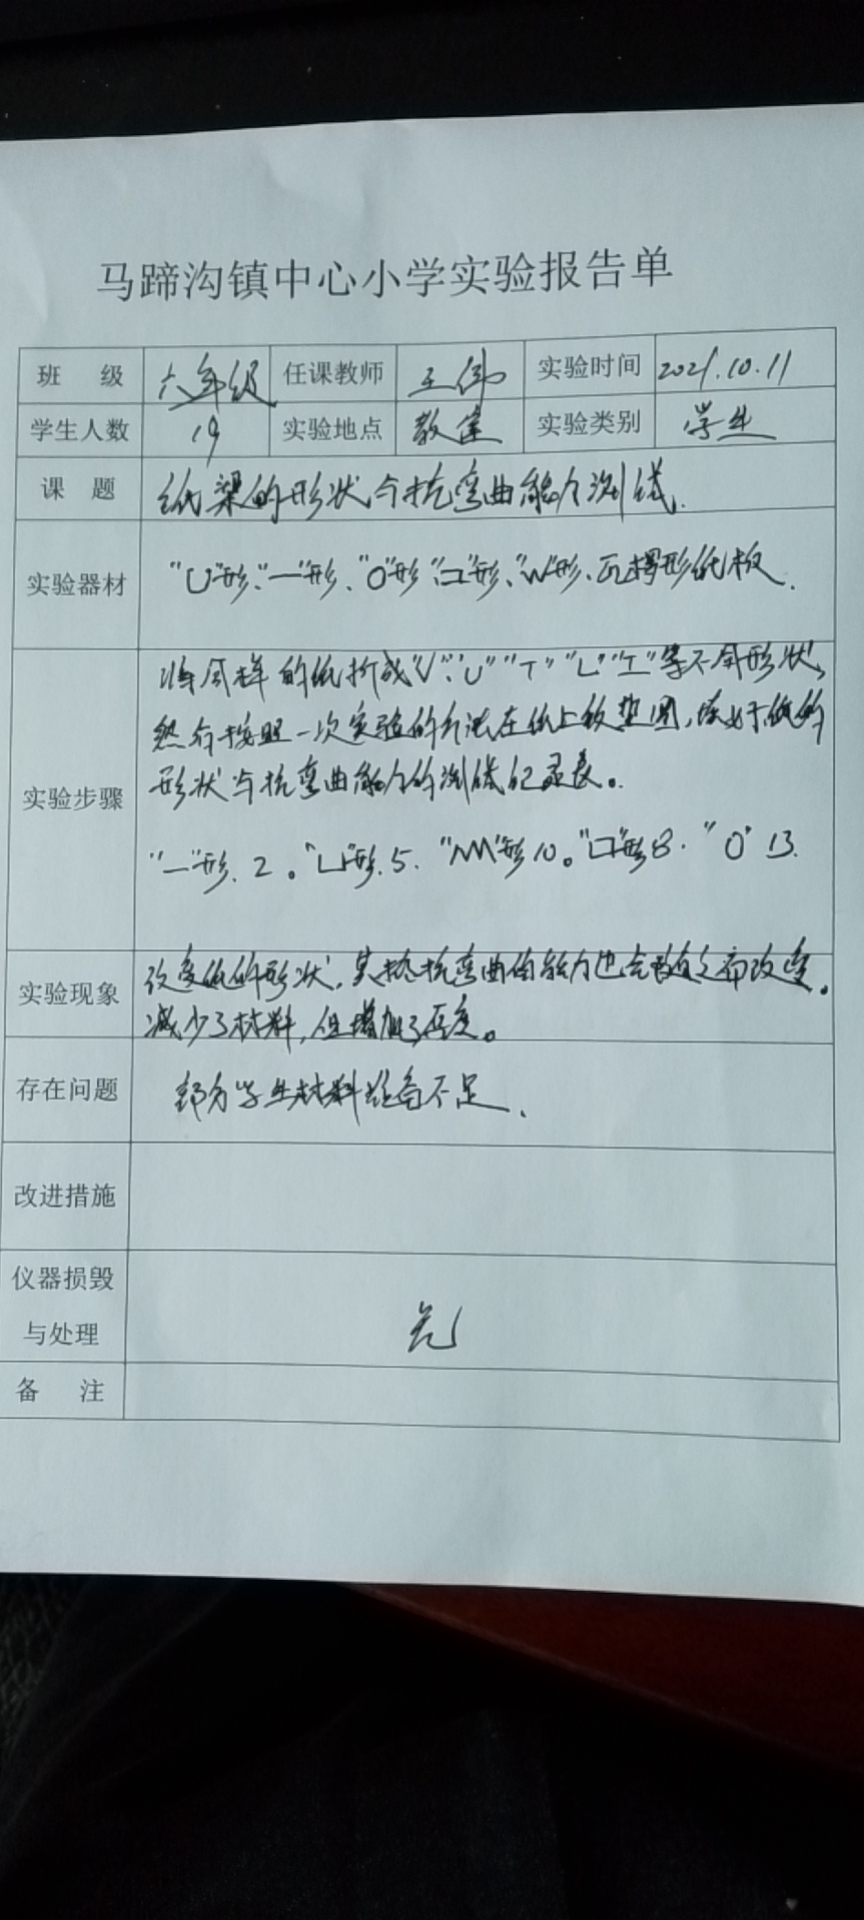 马蹄沟镇中心小学实验报告单
班 级 六年级 任课教师 王伟 实验时间 2021.10.11
学生人数 19 实验地点 教室 实验类别 学生
课 题 纸梁的形状与抗弯曲能力测试.
实验器材 "U"形、"一"形、"O"形"口"形、"W"形、瓦楞形纸板.
将同样的纸折成"V"、"U""T""L""工"等不同形状,
然后按照一次实验的方法在纸上放垫圈,填好纸的
实验步骤 形状与抗弯曲能力的测试记录表。
"一"形.2。"凵"形.5."M"形10。"口"形8."O"13.
实验现象 改变纸的形状,其抗弯曲的能力也会随之而改变。
减少了材料,但增加了厚度。
存在问题 部分学生材料准备不足.
改进措施
仪器损毁
与处理 无
备 注